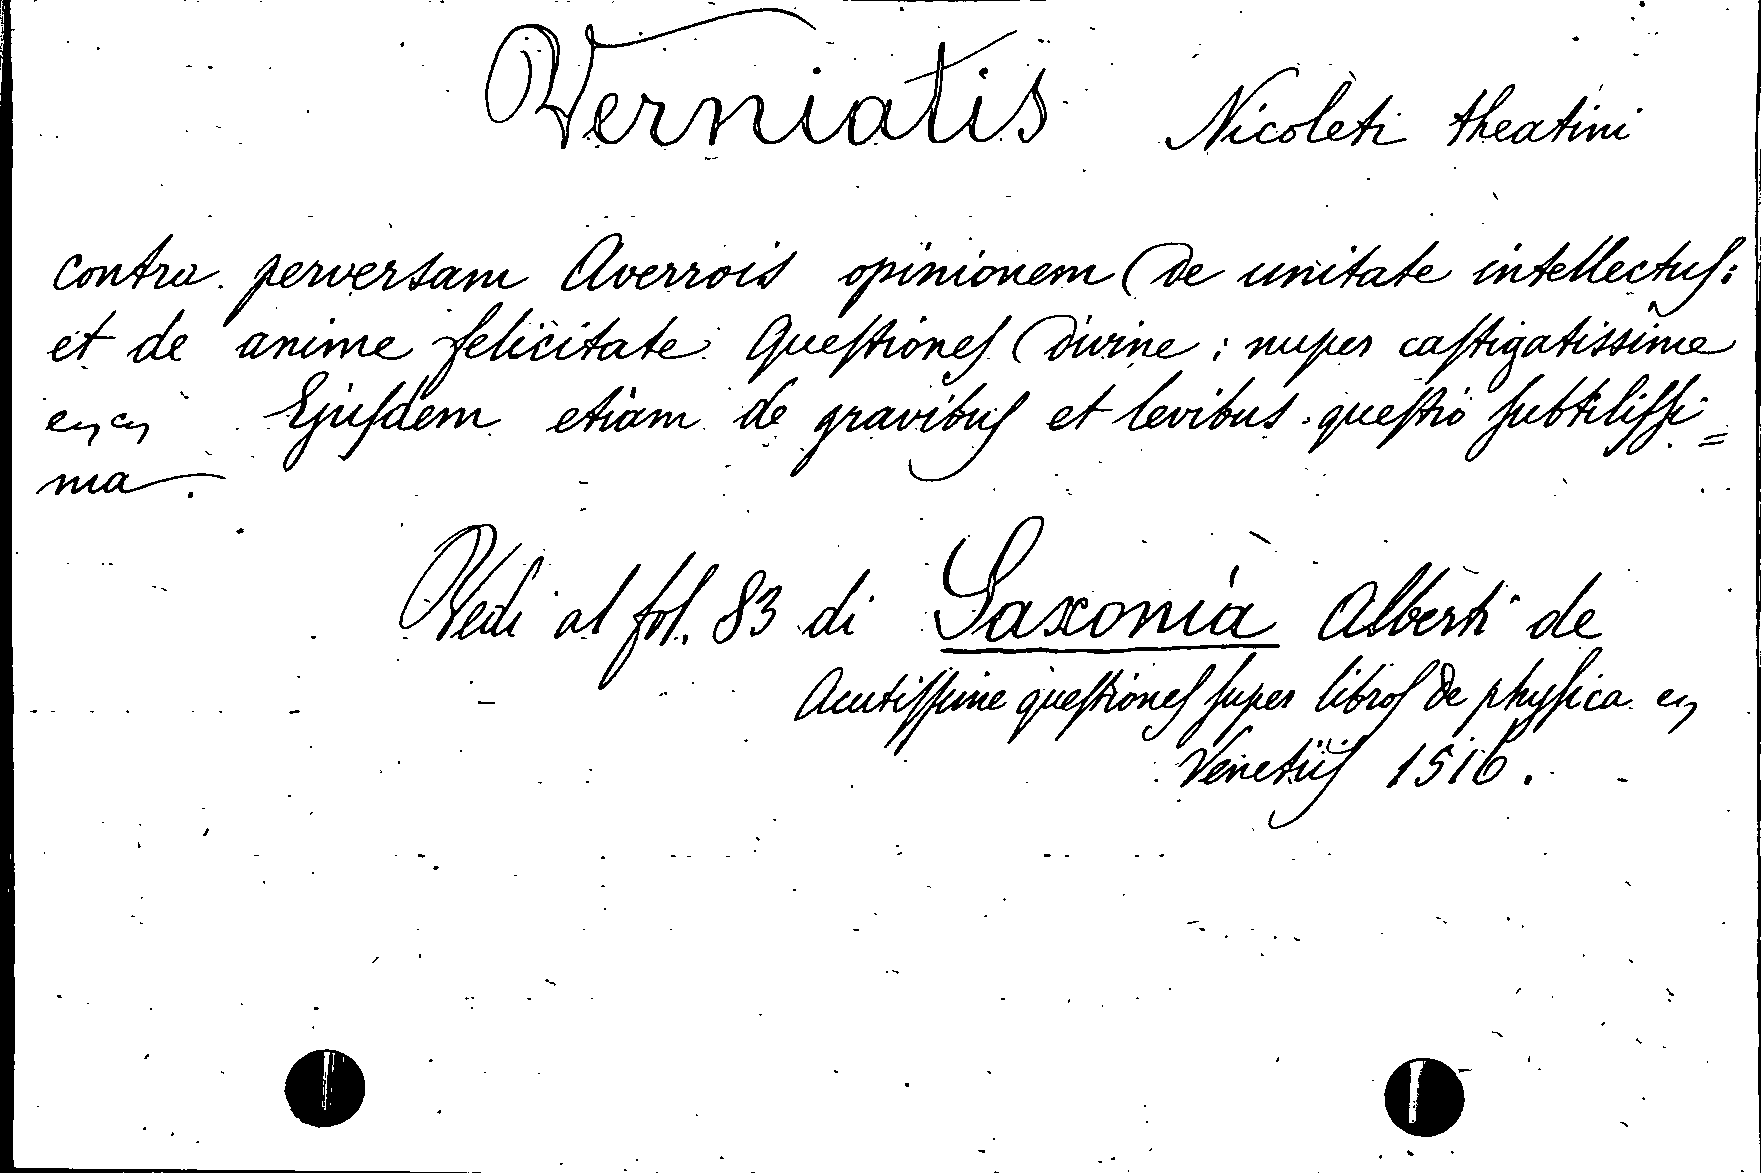 Verniatis Nicoleti theatini
contra perversam Averrois opinionem de unitate intellectus:
et de anime felicitate Questiones divine: nuper castigatissime
Ejusdem etiam de gravibus et levibus questio subtilissi=
ma.
Vedi al fol. 83 di Saxonia Alberti de
Acutissime questiones super libros de physica
Venetiis 1516.